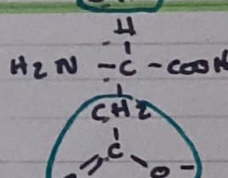 H
H2N - C - COOH
CH2
C
O-